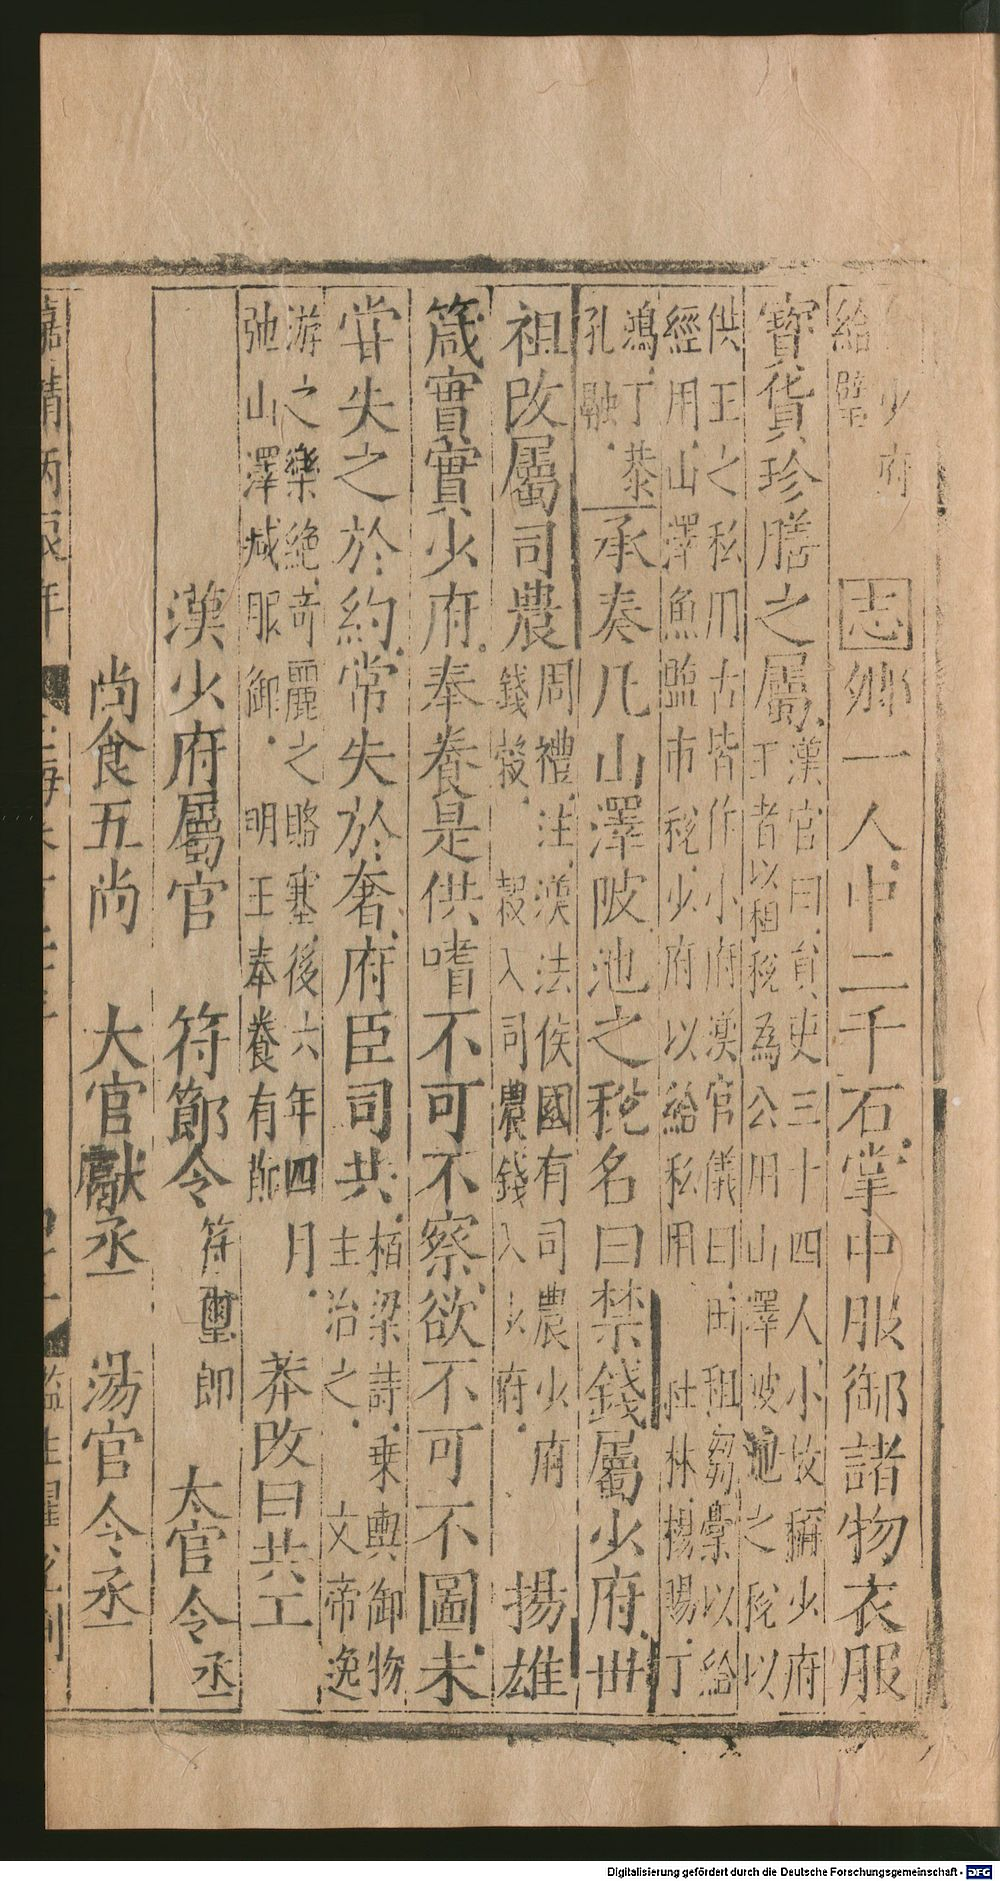 少府
給壁　志卿一人中二千石掌中服御諸物衣服
寶貨珍膳之屬漢官曰員吏三十四人小故稱少府
王者以租稅為公用山澤陂池之稅以
供王之私用古皆作小府漢官儀曰田租芻槀以給
經用山澤魚鹽市稅少府以給私用　杜林楊賜丁
鴻丁恭
孔融　承秦凡山澤陂池之稅名曰禁錢屬少府世
祖改屬司農周禮注漢法侯國有司農少府
錢穀　穀入司農錢入少府　揚雄
箴實實少府奉養是供嗜不可不察欲不可不圖未
甞失之於約常失於奢府臣司共栢梁詩乗輿御物
主治之　文帝逸
游之樂絶奇麗之賂塞後六年四月
弛山澤减服御　明王奉養有節　莽改曰共工
漢少府屬官　符節令符璽郎　太官令丞
尚食五尚　大官獻丞　湯官令丞
嘉靖丙辰年　監生瞿　刊
Digitalisierung gefördert durch die Deutsche Forschungsgemeinschaft - DFG